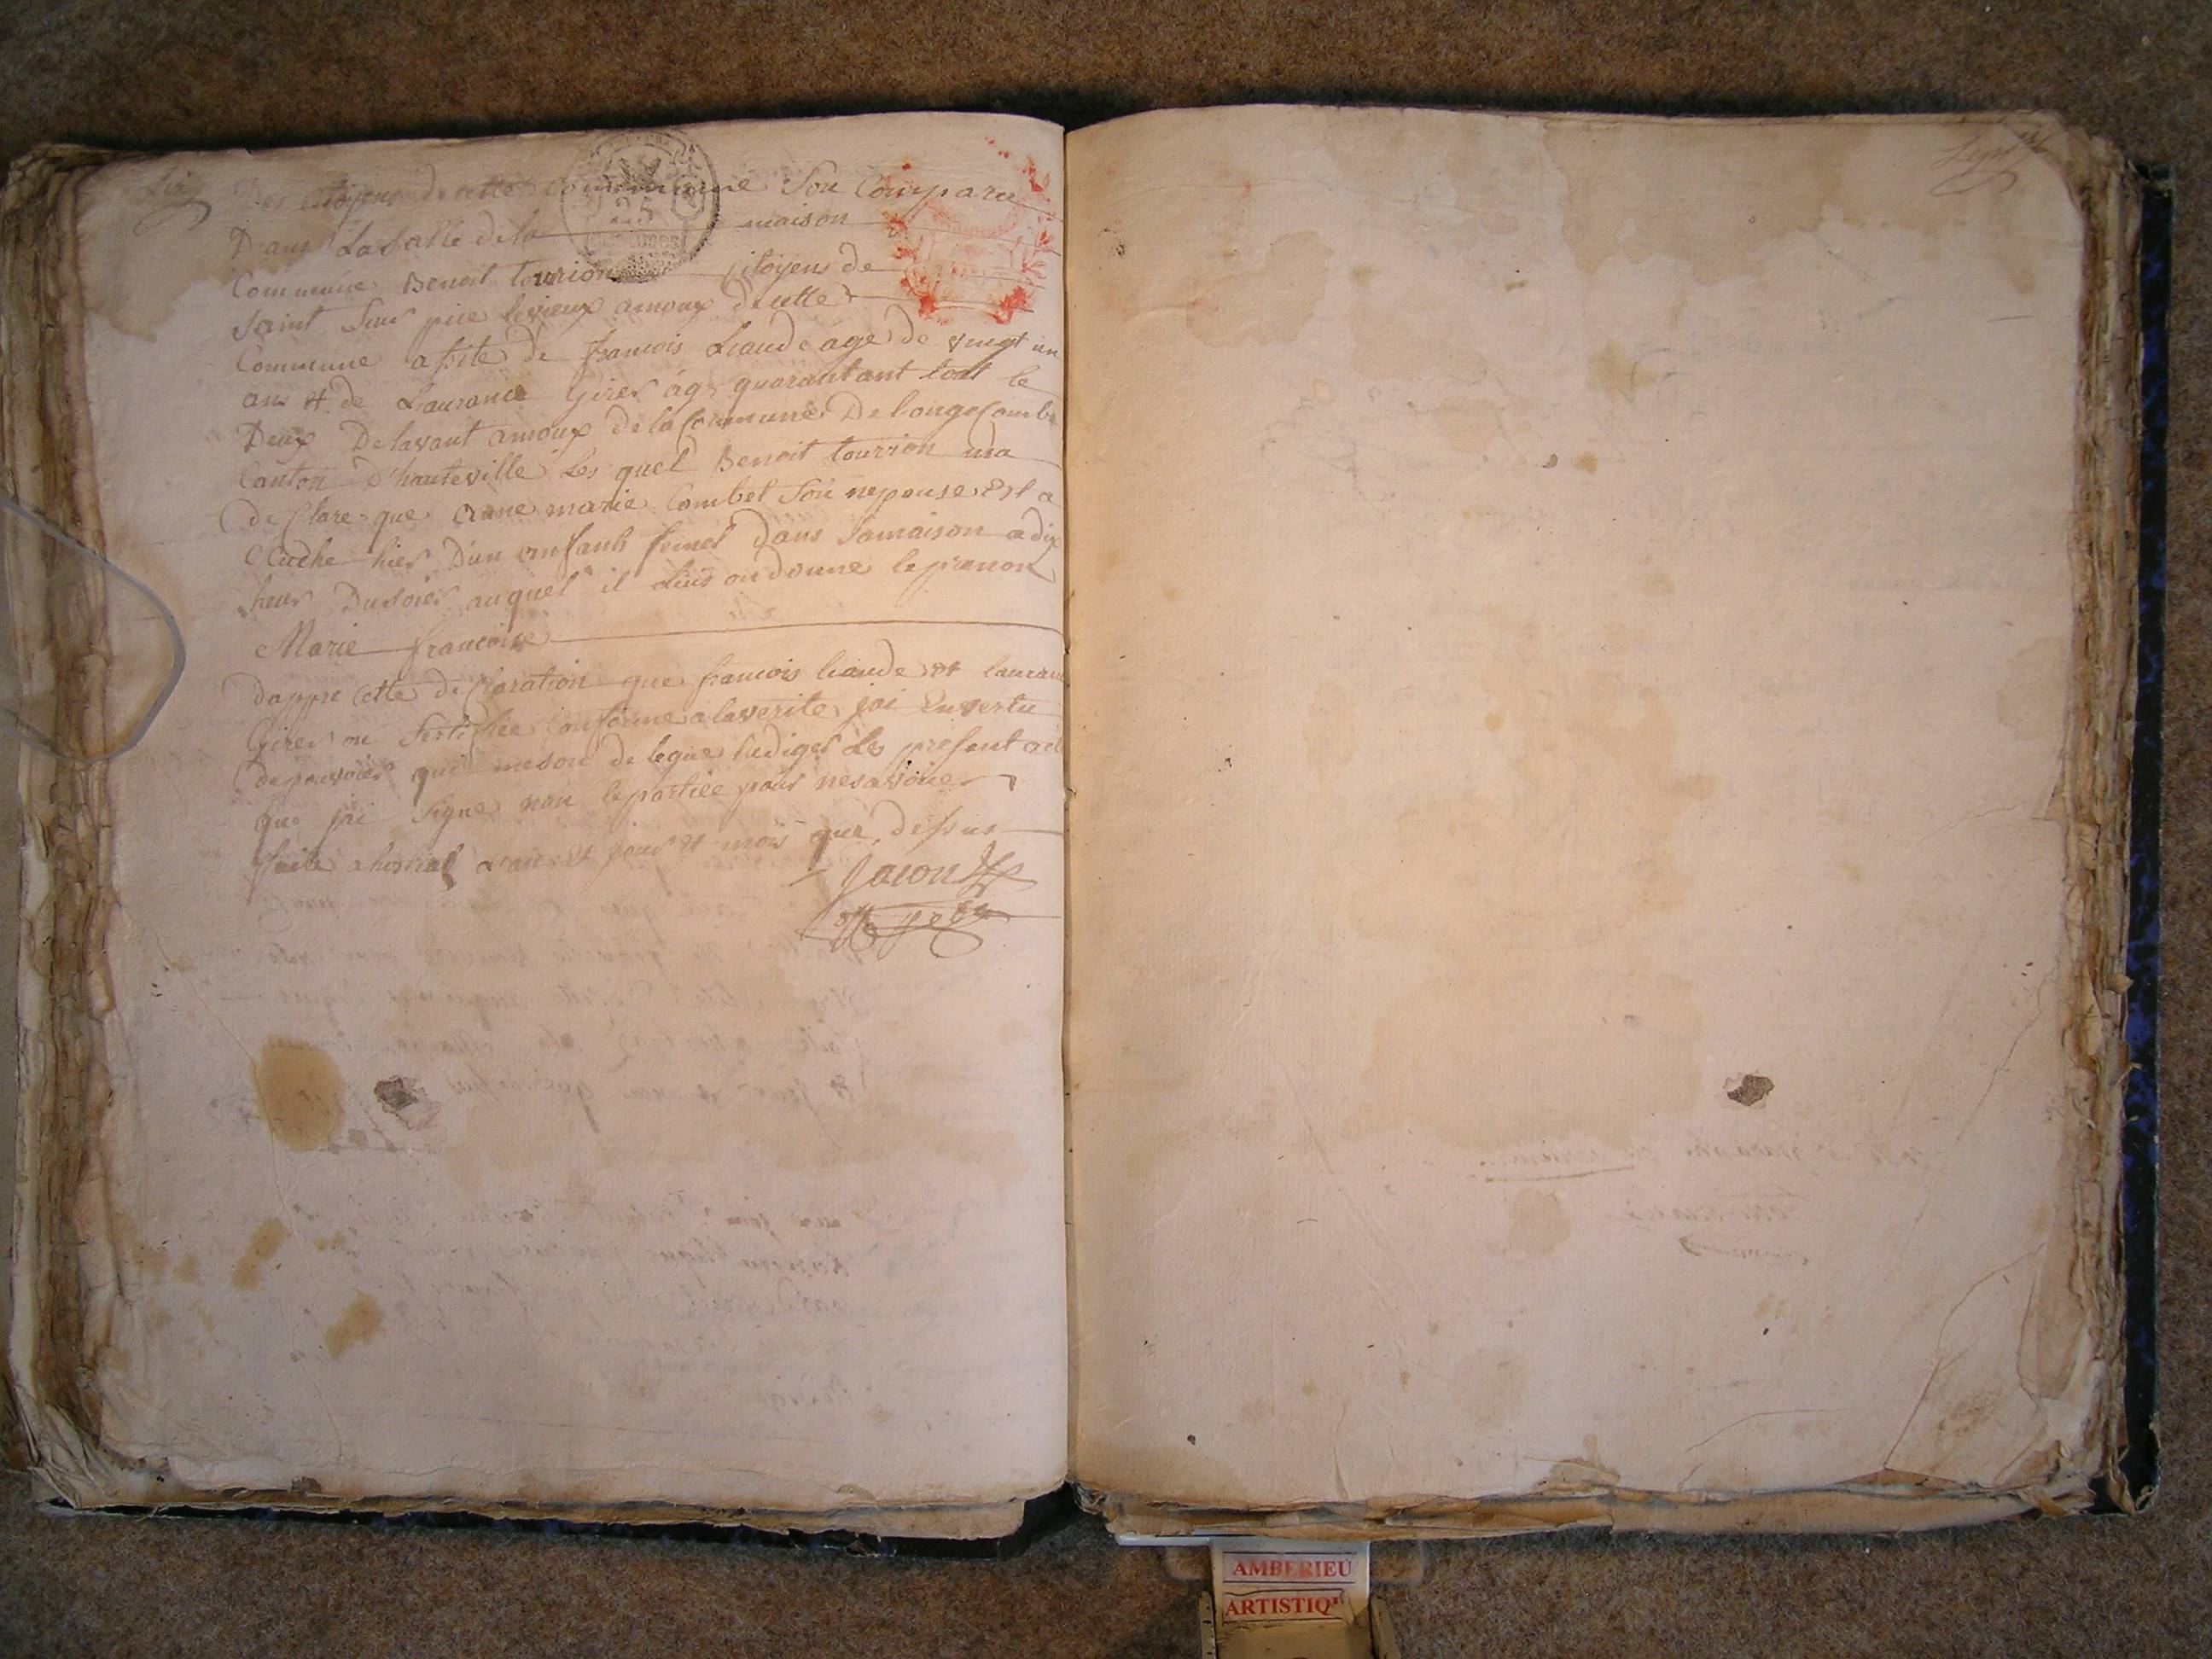 Six
Des Citoyens de cette Commune Son Comparu
Dans La Salle de la maison
Commune Benoit tourion Citoyens de
Saint Sur pice levieux amoux de cette
Commune asiste de francois Liaude age de vingt un
ans et de Laurance Girer age quarant ant tout le
Deux Delavant amoux de la Commune De longeCombe
Canton D'hauteville Les quel Benoit tourrion ma
de Clare que anne marie Combet Son nepouse Est a
CCuche hier D'un enfanh femel Dans Samaison a dix
heur Du Soier auquel il Luis on donne le prenon
Marie francoise
dappre Cette de Claration que francois liaude et lauranc
Girer on Sertifiee Conforme a laverite jai En vertu
de pouvoier qui meson de legue Rediger Les present act
que jai Signe non le partiee pour nesavoire
faite a l'an et jour et mois que dessus
Jacon
25
Sept
AMBERIEU
ARTISTIQ